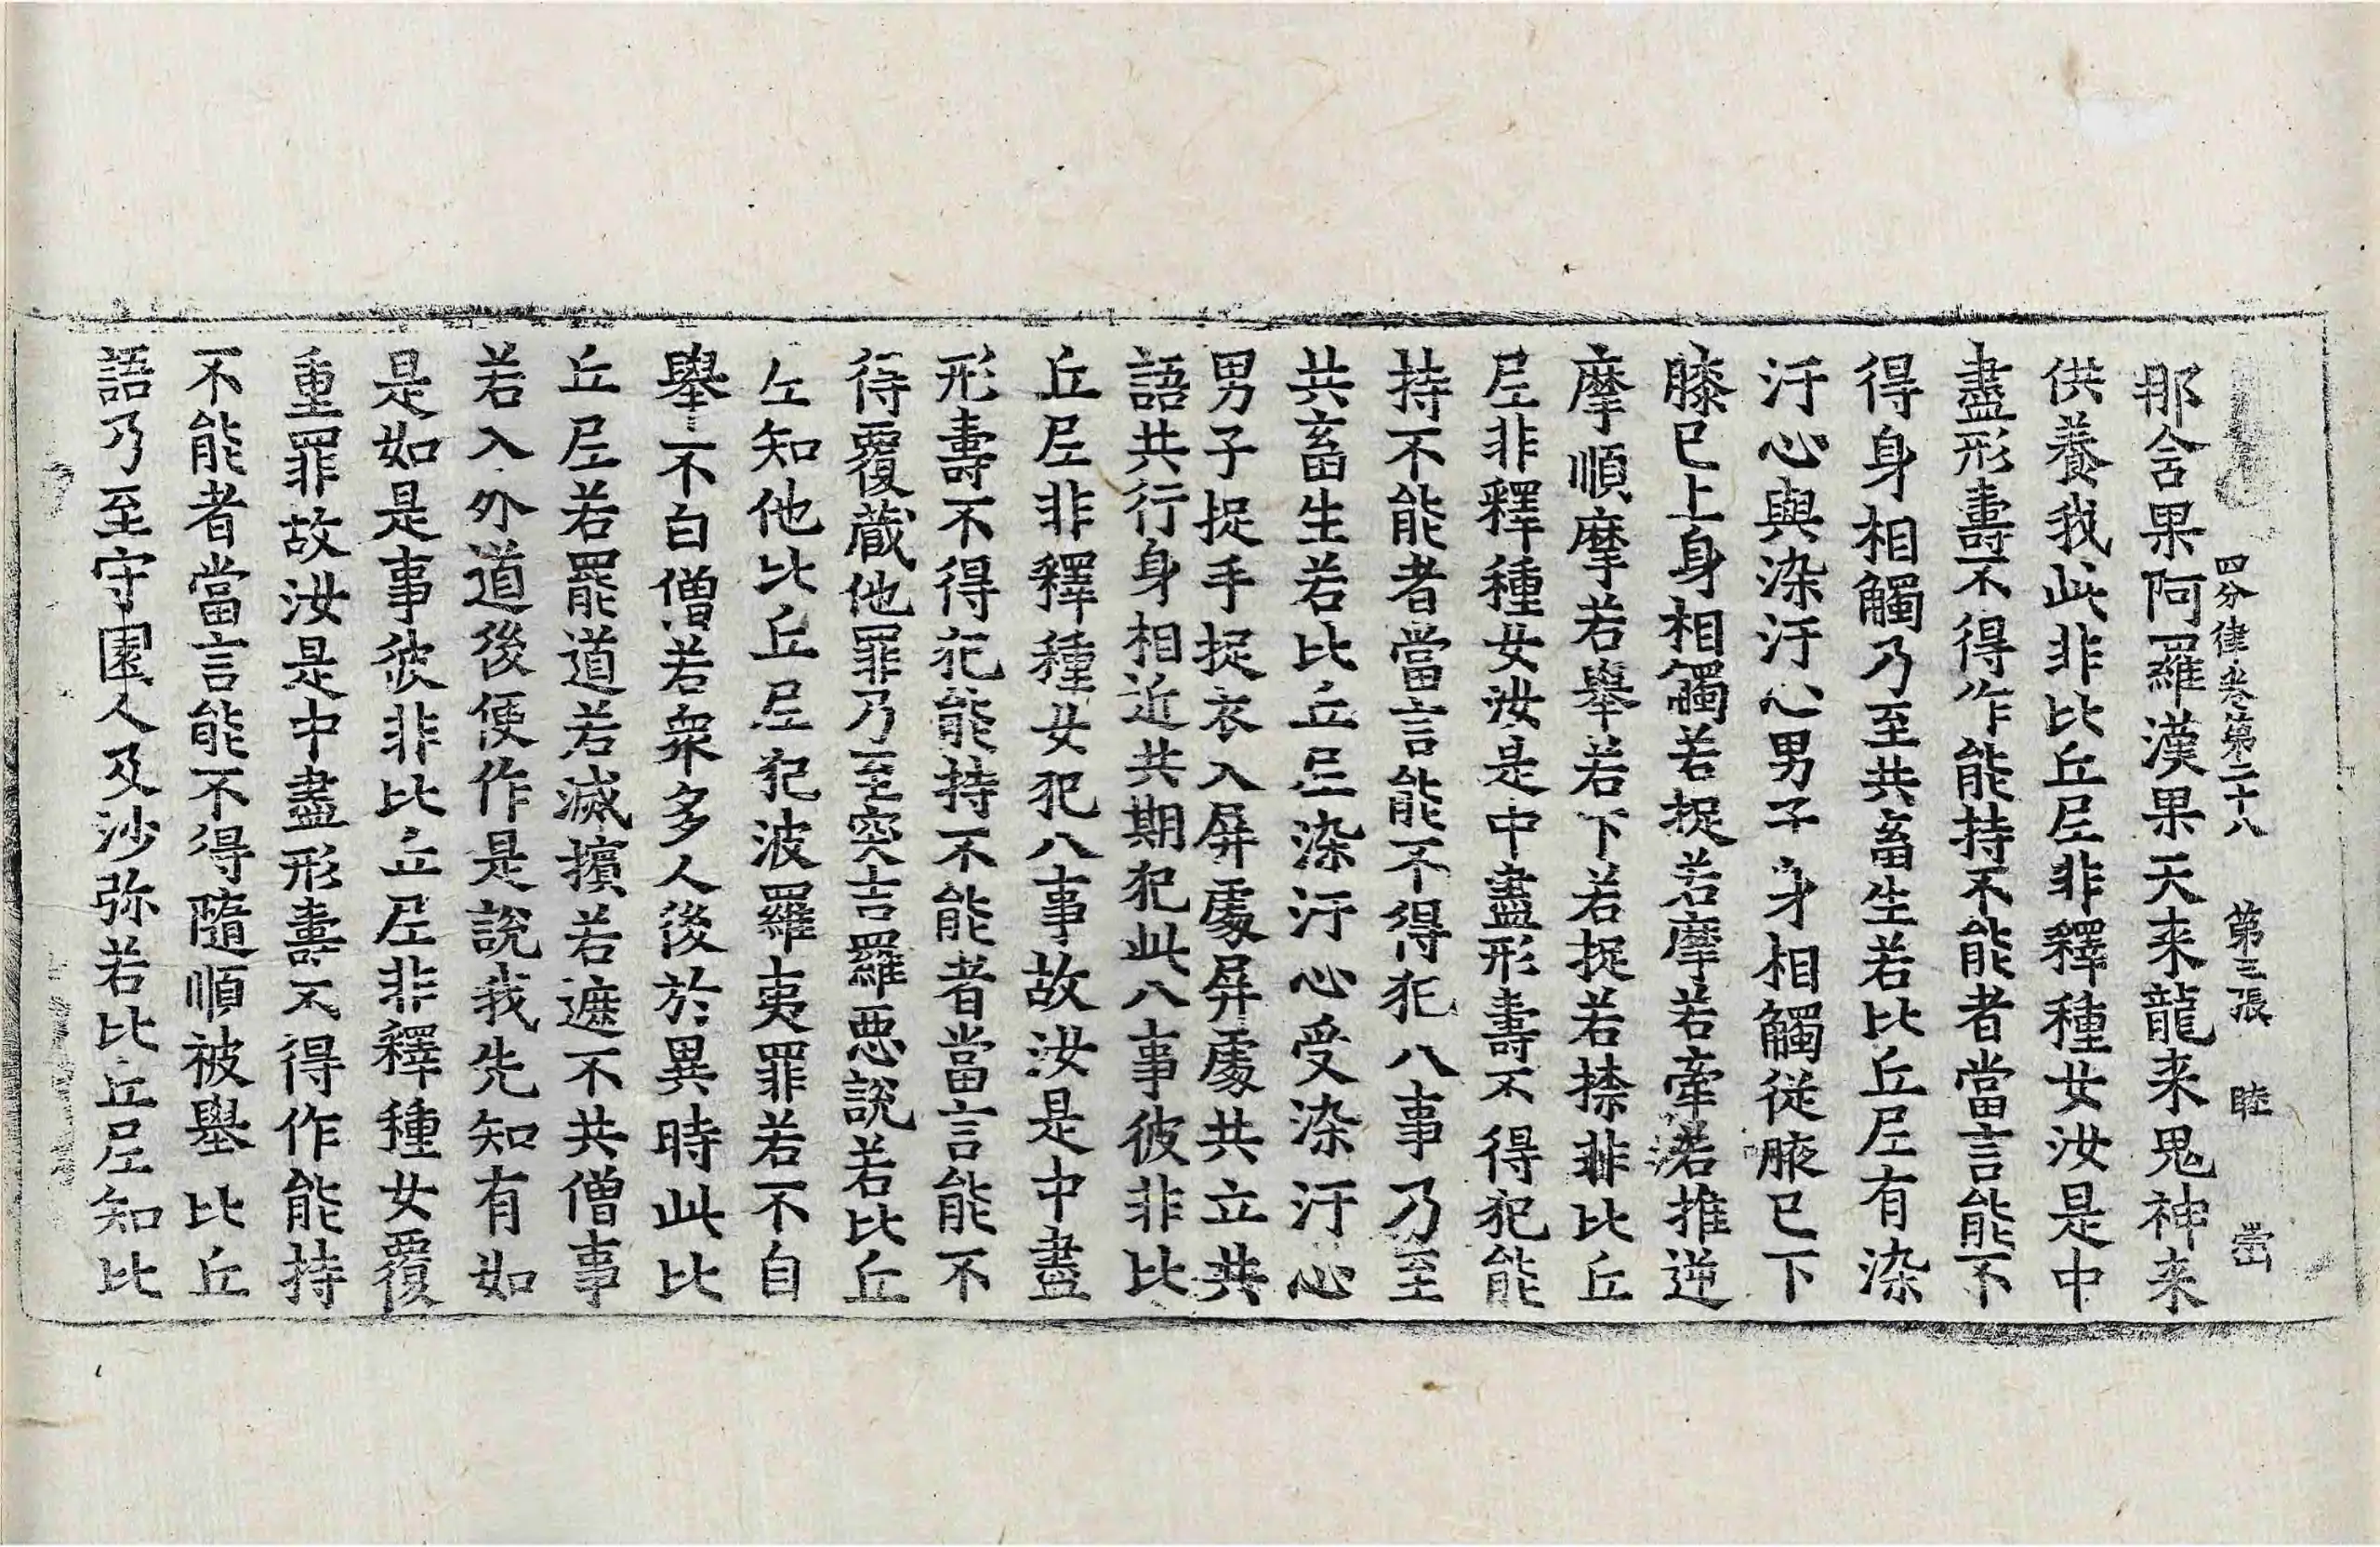 四分律卷第二十八 第三張 睦
那含果阿羅漢果天来龍来鬼神来
供養我此非比丘尼非釋種女汝是中
盡形壽不得作能持不能者當言能不
得身相觸乃至共畜生若比丘尼有染
汙心與染汙心男子身相觸從腋已下
膝已上身相觸若捉若摩若牽若推逆
摩順摩若舉若下若捉若捺非比丘
尼非釋種女汝是中盡形壽不得犯能
持不能者當言能不得犯八事乃至
共畜生若比丘尼染汙心受染汙心
男子捉手捉衣入屏處屏處共立共
語共行身相近共期犯此八事彼非比
丘尼非釋種女犯八事故汝是中盡
形壽不得犯能持不能者當言能不
得覆蔵他罪乃至突吉羅惡說若比丘
尼知他比丘尼犯波羅夷罪若不自
舉不白僧若衆多人後於異時此比
丘尼若罷道若滅擯若遮不共僧事
若入外道後便作是說我先知有如
是如是事彼非比丘尼非釋種女覆
重罪故汝是中盡形壽不得作能持
不能者當言能不得隨順被舉比丘
語乃至守園人及沙弥若比丘尼知比